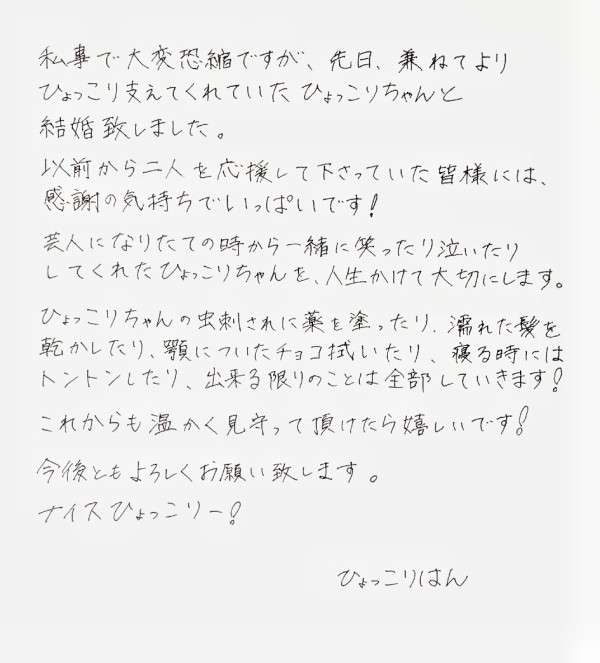 私事で大変恐縮ですが、先日、兼ねてより
ひょっこり支えてくれていたひょっこりちゃんと
結婚致しました。
以前から二人を応援して下さっていた皆様には、
感謝の気持ちでいっぱいです!
芸人になりたての時から一緒に笑ったり泣いたり
してくれたひょっこりちゃんを、人生かけて大切にします。
ひょっこりちゃんの虫刺されに薬を塗ったり、濡れた髪を
乾かしたり、顎についたチョコ拭いたり、寝る時には
トントンしたり、出来る限りのことは全部していきます!
これからも温かく見守って頂けたら嬉しいです!
今後ともよろしくお願い致します。
ナイスひょっこりー!
ひょっこりはん